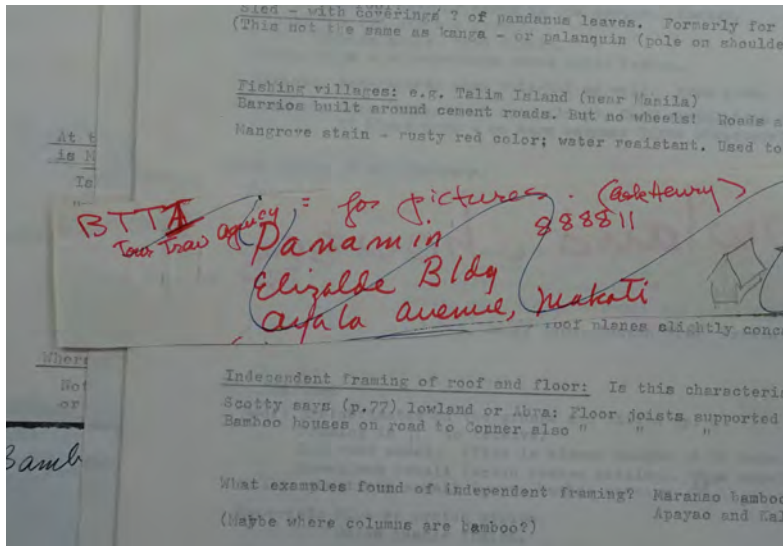 Sled - with coverings ? of pandanus leaves. Formerly for
(This not the same as kanga - or palanquin (pole on shoulde
Fishing villages: e.g. Talim Island (near Manila)
Barrios built around cement roads. But no wheels! Roads a
Mangrove stain - rusty red color; water resistant. Used to
At t
is N
Is
BTTA = for pictures. (ask Henry)
Tour Trav agency
888811
Panamin
Elizalde Bldg
Ayala Avenue, Makati
roof planes slightly conc
Where
Not
or
Independent framing of roof and floor: Is this characteri
Scotty says (p.77) lowland or Abra: Floor joists supported
Bamboo houses on road to Conner also " " "
Bamb
What examples found of independent framing? Maranao bamboo
Apayao and Kal
(Maybe where columns are bamboo?)